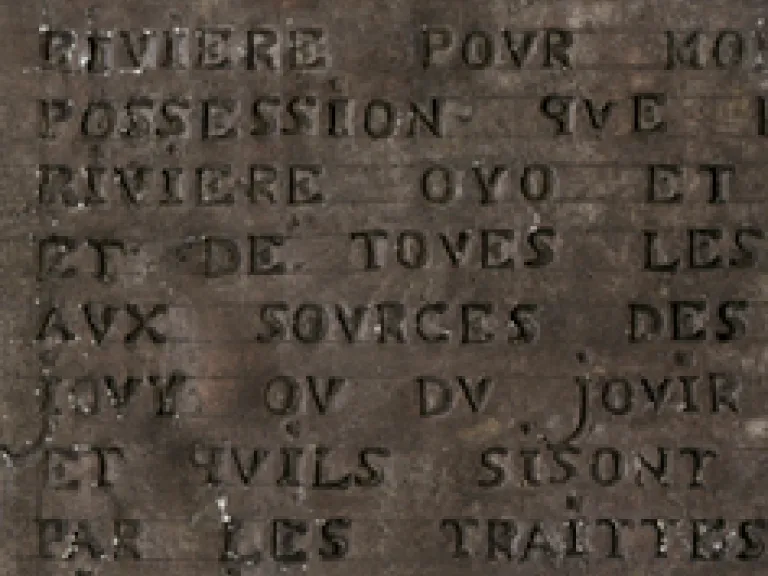 RIVIERE POVR MO
POSSESSION QVE
RIVIERE OYO ET
ET DE TOVES LES
AVX SOVRCES DES
IOVY OV DV JOVIR
ET QVILS SISONT
PAR LES TRAITTES